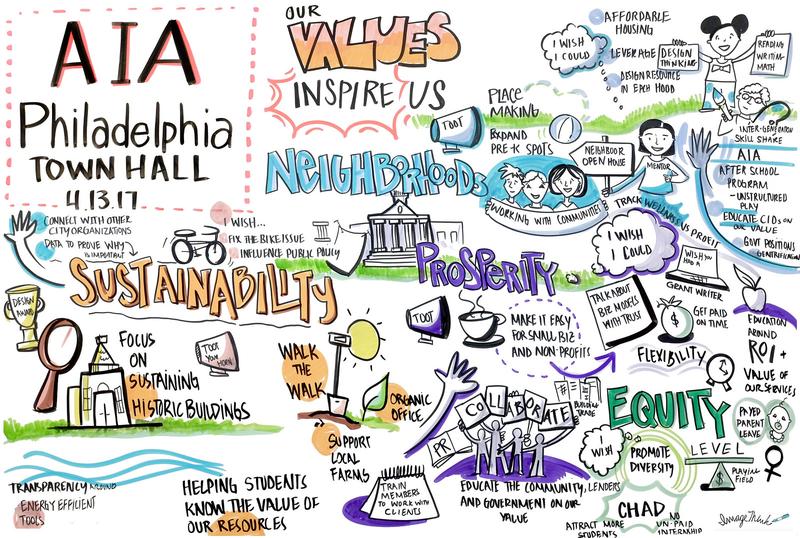 AIA
Philadelphia
TOWN HALL
4.13.17
OUR
VALUES
INSPIRE US
I WISH
I COULD
AFFORDABLE
HOUSING
LEVERAGE
DESIGN
THINKING
READING
WRITING
MATH
DESIGN RESOURCE
IN EACH HOOD
INTER-GENERATION
SKILL SHARE
PLACE
MAKING
TOOT
EXPAND
PRE-K SPOTS
NEIGHBORHOODS
NEIGHBOOR
OPEN HOUSE
MENTOR
WORKING WITH COMMUNITIES
TRACK WELLNESS VS PROFIT
AIA
AFTER SCHOOL
PROGRAM
-UNSTRUCTURED
PLAY
EDUCATE CIDs ON
OUR VALUE
GOVT POSITIONS
GENTRIFICATION
CONNECT WITH OTHER
CITY ORGANIZATIONS
DATA TO PROVE WHY
IS IMPORTANT
I WISH...
FIX THE BIKE ISSUE
INFLUENCE PUBLIC POLICY
SUSTAINABILITY
DESIGN
AWARD
FOCUS
ON
SUSTAINING
HISTORIC BUILDINGS
TOOT
YOUR
HORN
WALK
THE
WALK
ORGANIC
OFFICE
SUPPORT
LOCAL
FARMS
TRANSPARENCY AROUND
ENERGY EFFICIENT
TOOLS
HELPING STUDENTS
KNOW THE VALUE OF
OUR RESOURCES
PROSPERITY
I WISH
I COULD
WISH YOU
HAD A
GRANT WRITER
TOOT
MAKE IT EASY
FOR SMALL BIZ
AND NON-PROFITS
TALK ABOUT
BIZ MODELS
WITH TRUST
$
GET PAID
ON TIME
FLEXIBILITY
EDUCATION
AROUND
ROI +
VALUE OF
OUR SERVICES
PR
COLLABORATE
BUILDING
TRADE
TRAIN
MEMBERS
TO WORK WITH
CLIENTS
EDUCATE THE COMMUNITY, LENDERS
AND GOVERNMENT ON OUR
VALUE
EQUITY
I WISH
PROMOTE
DIVERSITY
PAYED
PARENT
LEAVE
LEVEL
PLAYING
FIELD
CHAD
ATTRACT MORE
STUDENTS
NO
UN-PAID
INTERNSHIP
ImageThink